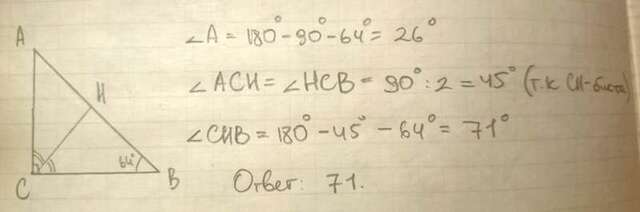 A
H
64°
C
B
∠A = 180° - 90° - 64° = 26°
∠ACH = ∠HCB = 90° : 2 = 45° (т.к CH-бисса)
∠CHB = 180° - 45° - 64° = 71°
Ответ: 71.